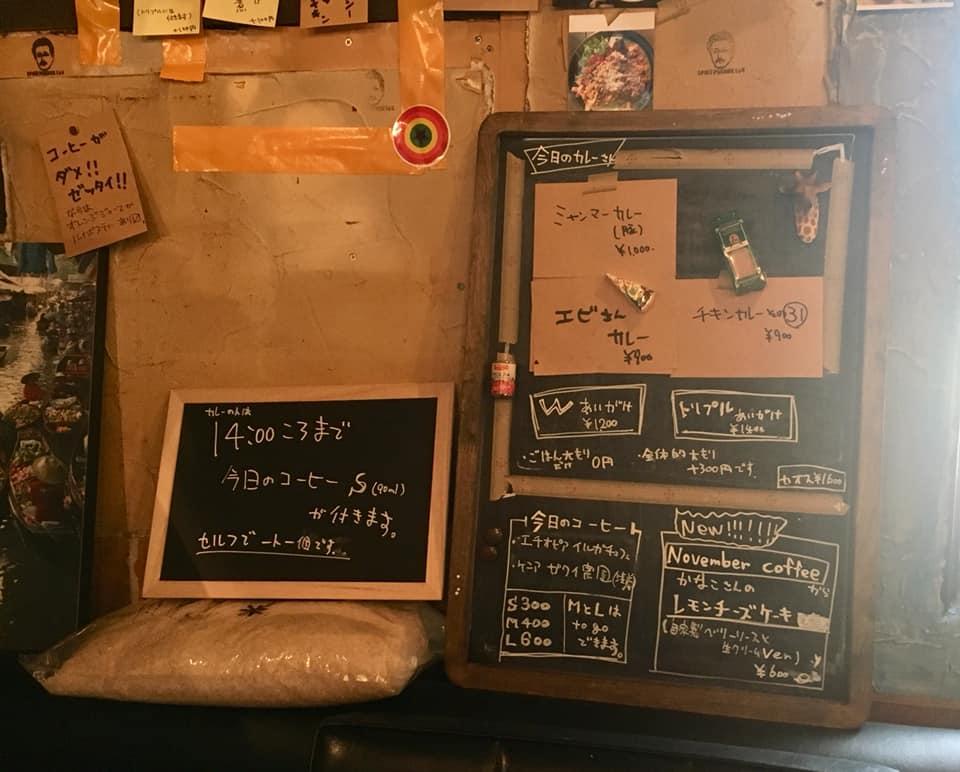 コーヒーが
ダメ!!
ゼッタイ!!
な方は
オレンジジュースか
今日のカレーさん
ミャンマーカレー
(豚)
¥1,000.
エビさん
カレー
¥900
チキンカレー その31
¥900
W あいがけ
¥1200
トリプル あいがけ
¥1400
・ごはん大もり
だけ 0円
・全体的大もり
+300円です。
カオス ¥1600
カレーの人は
14:00ころまで
今日のコーヒー S(90ml)
が付きます。
セルフでートー個です。
今日のコーヒー
・エチオピア イルガチェフェ
・ケニア
S 300
M 400
L 600
MとLは
to go
できます。
New!!!!!!
November coffee
から
かなこさんの
レモンチーズケーキ
(自家製ベリーソースと
生クリームver)
¥600